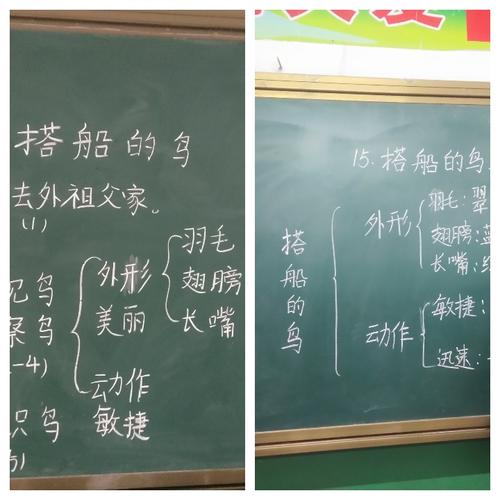 搭船的鸟
去外祖父家。
(1)
见鸟
察鸟
-4)
识鸟
外形
美丽
羽毛
翅膀
长嘴
动作
敏捷
15.搭船的鸟
搭船的鸟
外形
羽毛:翠
翅膀:蓝
长嘴:红
动作
敏捷:
迅速: